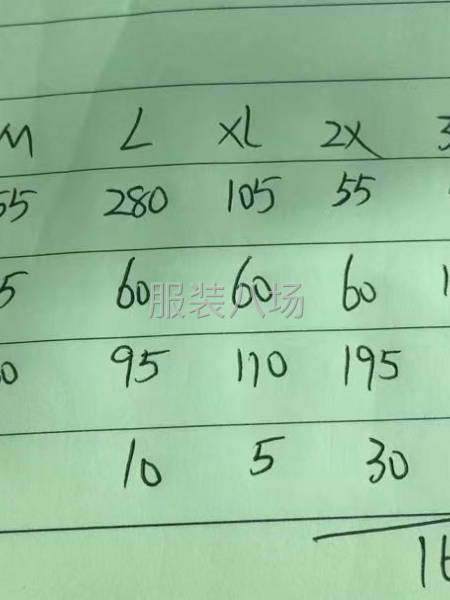 M L XL 2X 3
55 280 105 55
5 60 60 60 1
0 95 110 195
10 5 30
服装八场